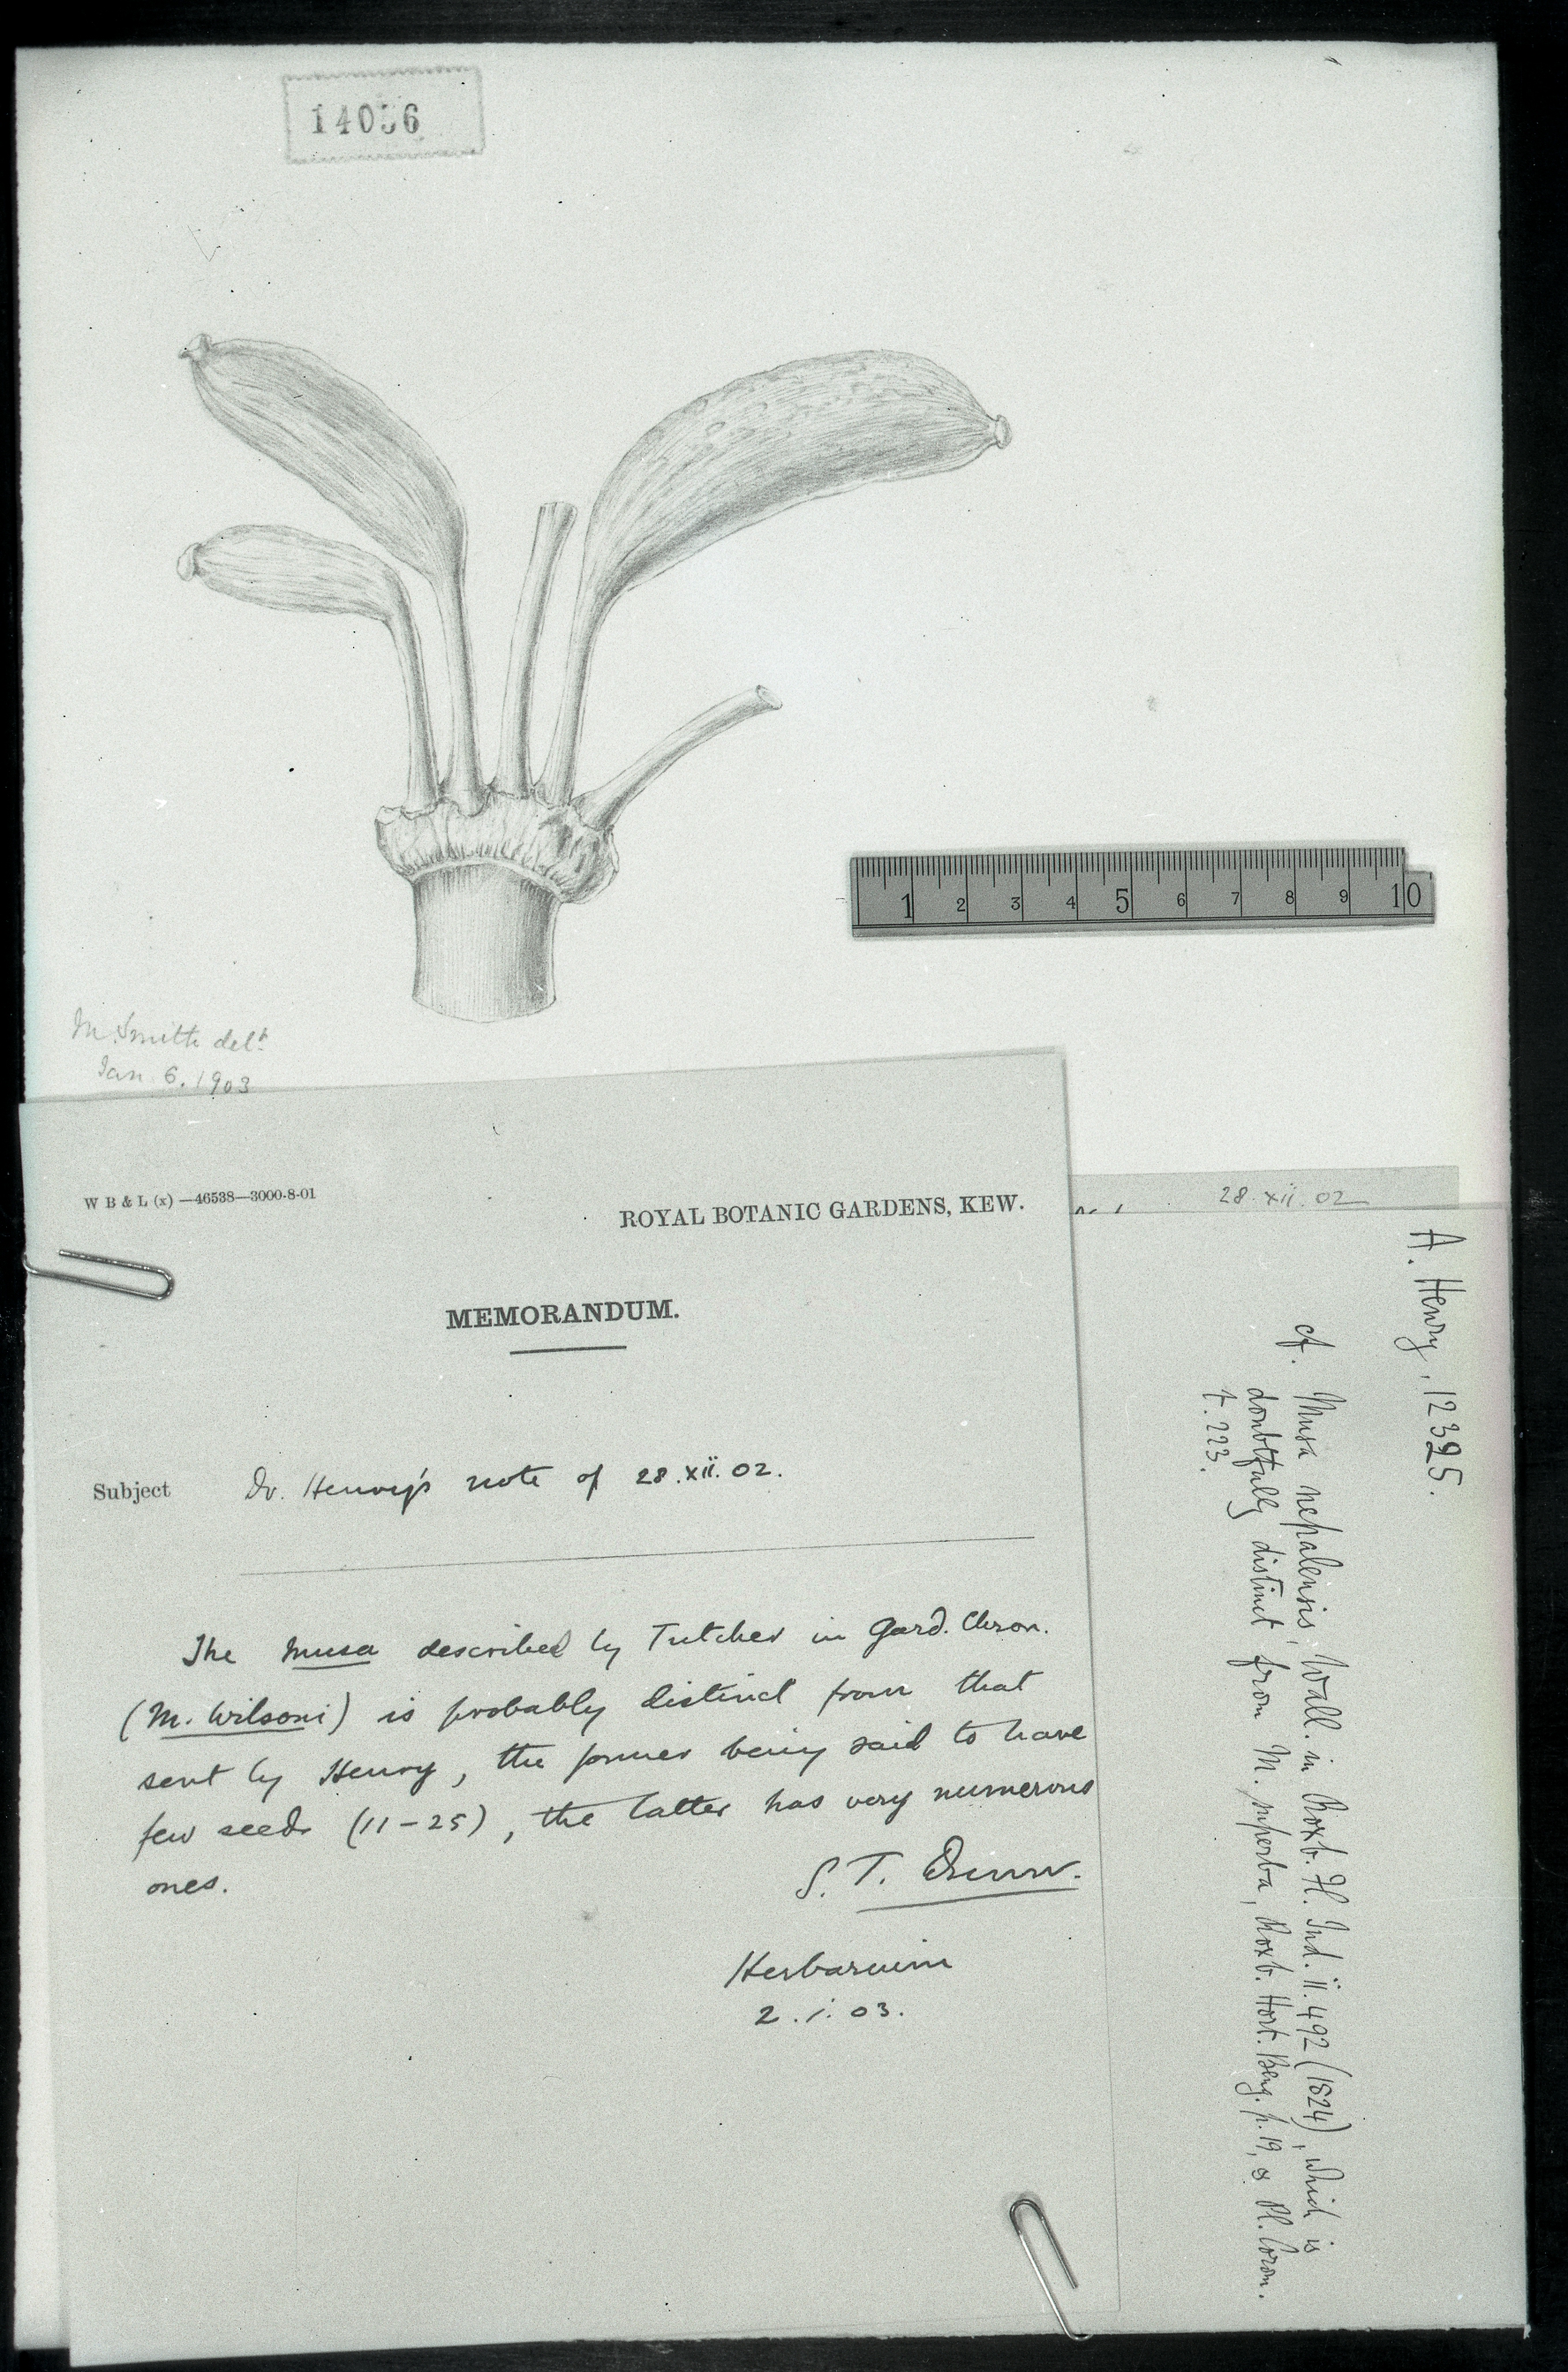 14036
1 2 3 4 5 6 7 8 9 10
M. Smith delt.
Jan. 6. 1903
W B & L (x) —46538—3000-8-01
ROYAL BOTANIC GARDENS, KEW.
MEMORANDUM.
Subject Dr. Henry's note of 28.xii.02.
The Musa described by Tutcher in Gard. Chron.
(M. Wilsoni) is probably distinct from that
sent by Henry, the former being said to have
few seeds (11-25), the latter has very numerous
ones.
S. T. Dunn.
Herbarium
2.i.03.
28.xii.02
A. Henry, 12325.
cf. Musa nepalensis, Wall. in Roxb. Fl. Ind. ii. 492 (1824), which is
doubtfully distinct from M. superba, Roxb. Hort. Beng. p. 19, & Pl. Corom.
t. 223.